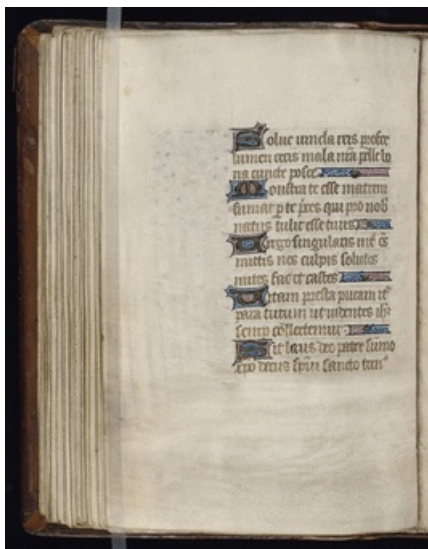 Solue uincla reis profer
lumen cecis mala nr̃a pelle bo
na cuncta posce
Monstra te esse matrem
sumat p te p̃ces qui pro nob
natus tulit esse tuus
Uirgo singularis int̃ oẽs
mittis nos culpis solutos
mites fac et castos
Uitam presta puram it̃
para tutum ut uidentes ihm
semp collectemur
Sit laus deo patri sumo
xpo decus spũi sancto